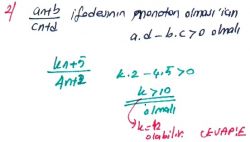 2) an+b / cn+d ifadesinin monoton olması için
a.d - b.c > 0 olmalı
kn+5 / 4n+2
k.2 - 4.5 > 0
k > 10
olmalı
k=12
olabilir. CEVAP: E